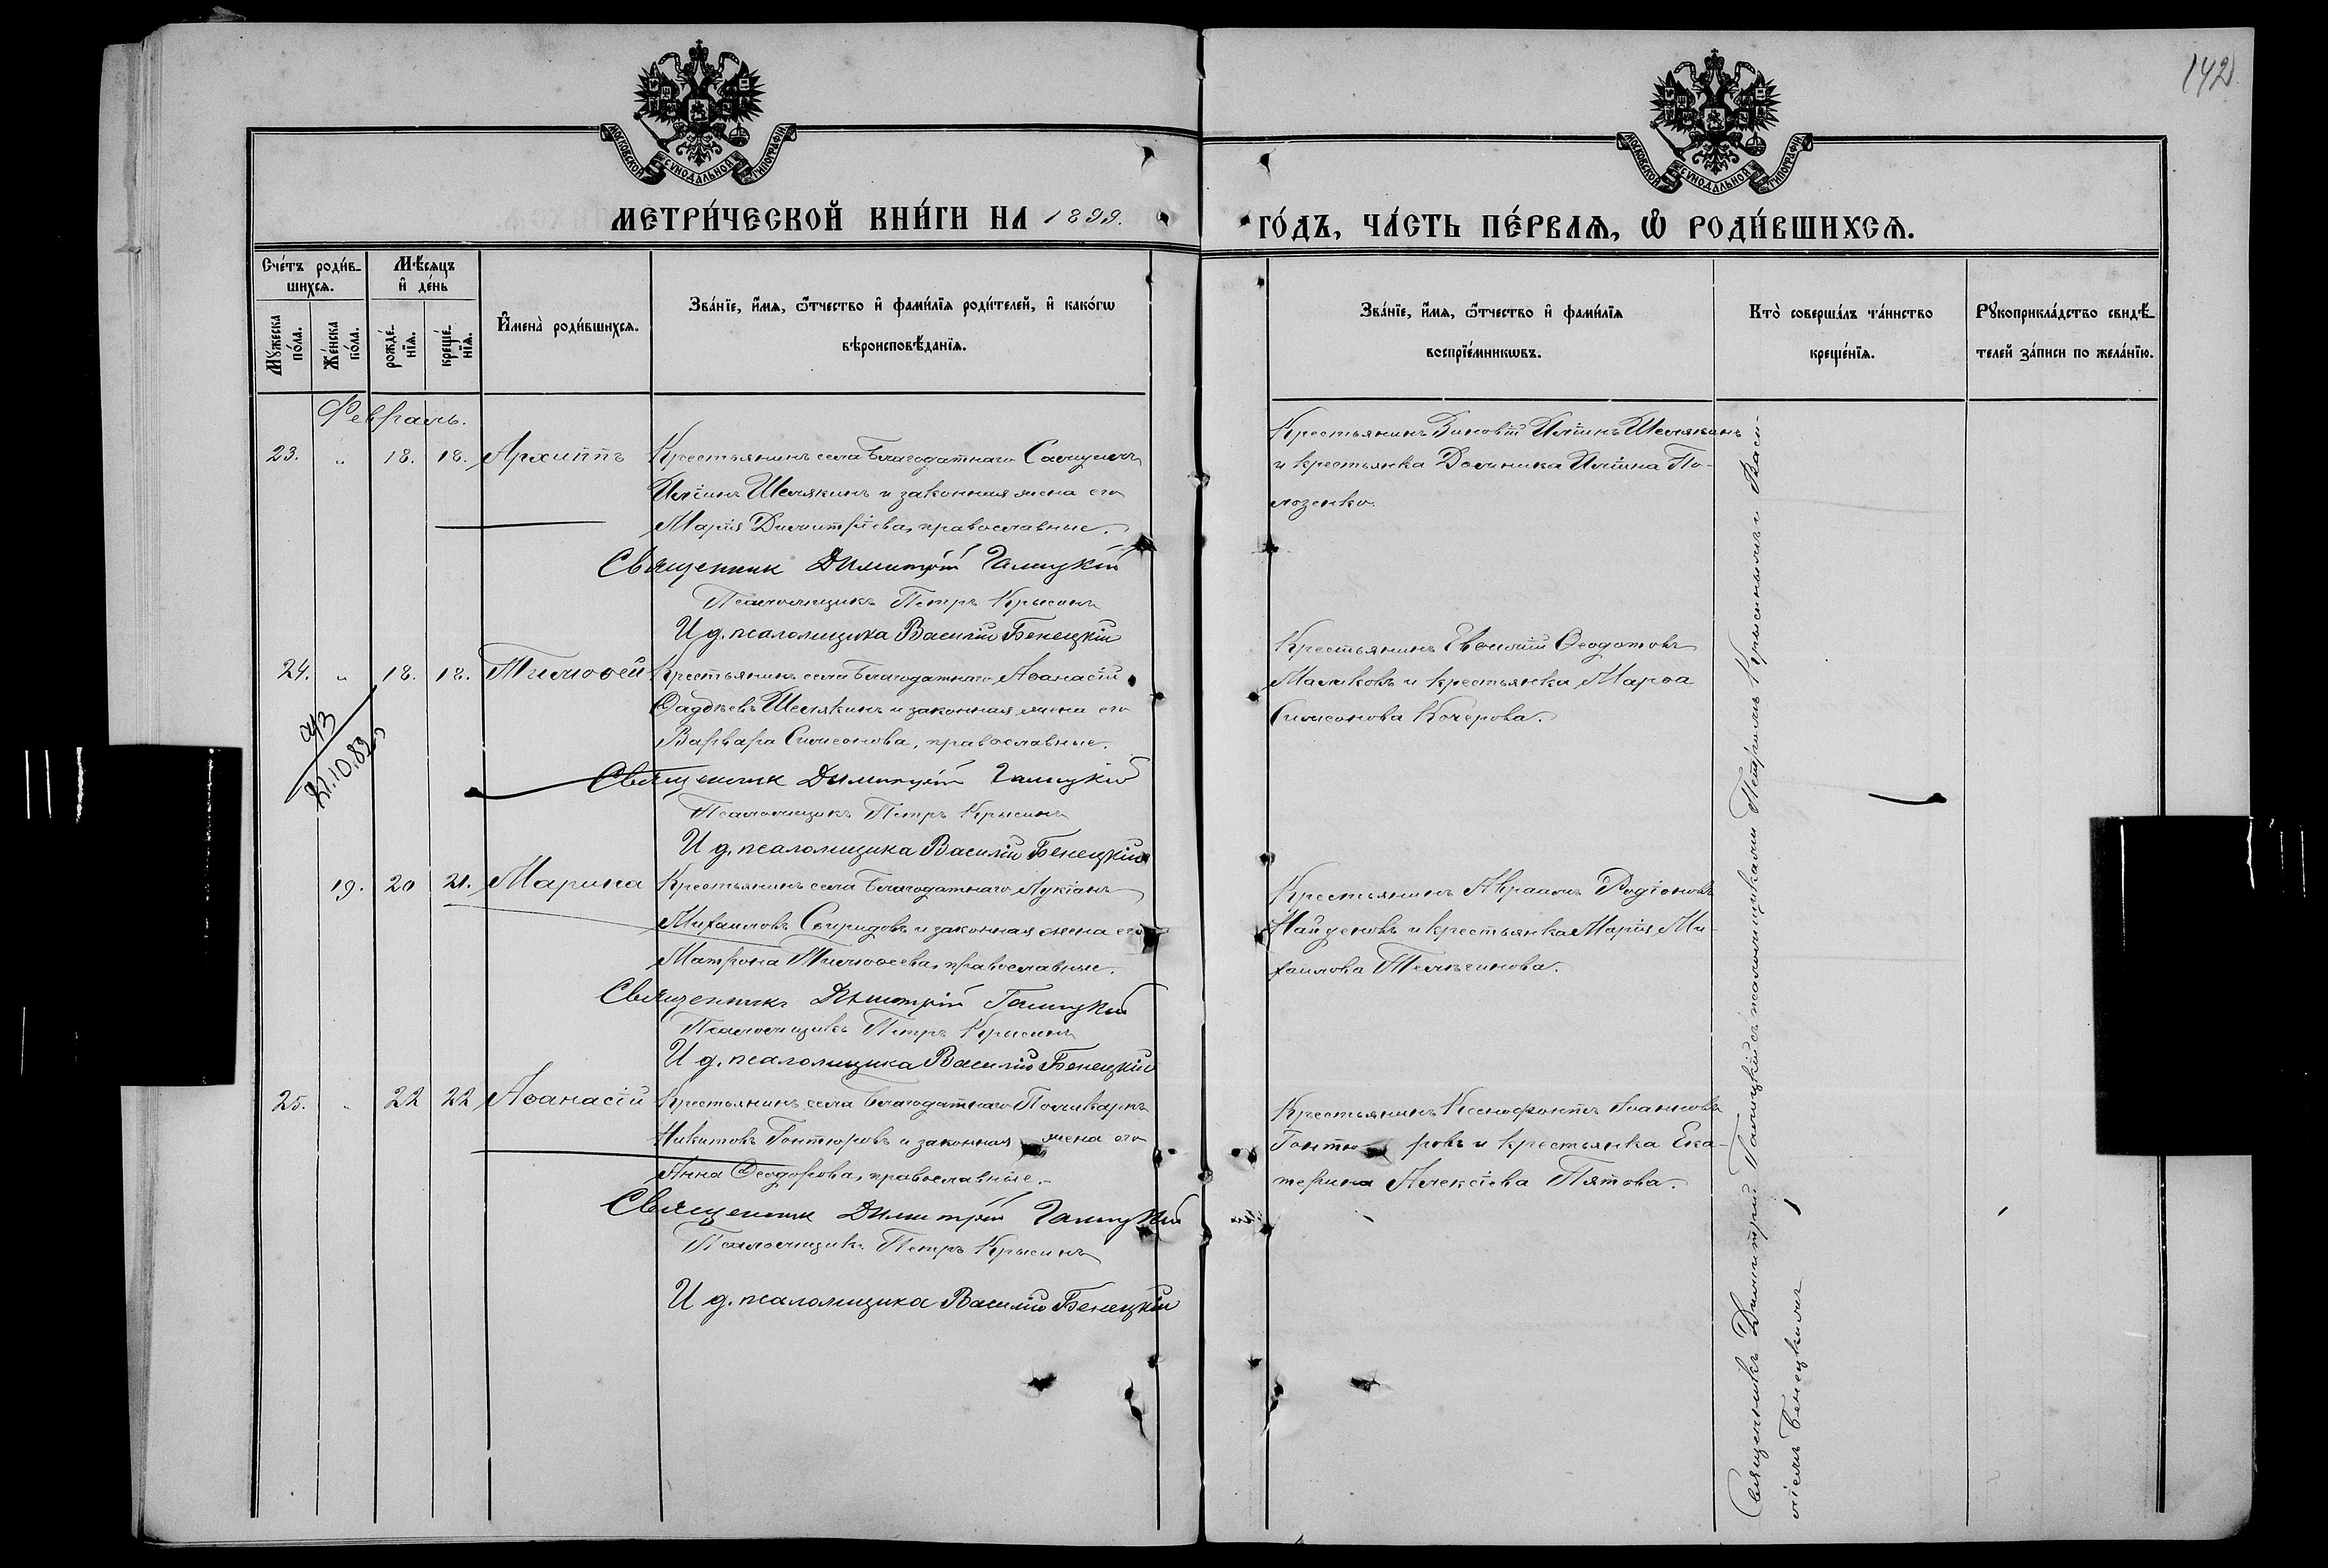 142
МОСКОВСКОЙ СѴНОДАЛЬНОЙ ТИПОГРАФІИ
МОСКОВСКОЙ СѴНОДАЛЬНОЙ ТИПОГРАФІИ
МЕТРИ́ЧЕСКОЙ КНИ́ГИ НА 1899. ГО́ДЪ, ЧА́СТЬ ПЕ́РВАѦ, Ѡ҆ РОДИ́ВШИХСѦ.
Сче́тъ роди́в-
шихсѧ.
Мꙋжеска по́ла.
Же́нска по́ла.
Мѣ́сѧцъ и҆ де́нь
рожде́-нїѧ.
креще́-нїѧ.
И҆мена̀ роди́вшихсѧ.
Зва́нїе, и҆́мѧ, ѻ҆́тчество и҆ фами́лїѧ роди́телей, и҆ како́гѡ
вѣроисповѣ́данїѧ.
Зва́нїе, и҆́мѧ, ѻ҆́тчество и҆ фами́лїѧ
воспрїе́мникѡвъ.
Кто̀ соверша́лъ та́инство
креще́нїѧ.
Рꙋкоприкла́дство свидѣ́-
телей за́писи по жела́нїю.
Февраль.
23. " 18. 18. Архиппъ Крестьянинъ села Благодатнаго Самуилъ
Иліинъ Шемякинъ и законная жена его
Марія Димитріева, православные.
Священник Димитрій Галицкій
Псаломщикъ Петръ Крысинъ
И д. псаломщика Василій Бенецкій
Крестьянинъ Зиновій Иліинъ Шемякинъ
и крестьянка Домника Иліина По-
лозенко.
24. " 18. 18. Тимоѳей Крестьянинъ села Благодатнаго Аѳанасій
Ѳадѣевъ Шемякинъ и законная жена его
Варвара Симеонова, православные.
Священник Димитрій Галицкій
Псаломщикъ Петръ Крысинъ
И д. псаломщика Василій Бенецкій
Крестьянинъ Евѳимій Ѳеодотовъ
Маликовъ и крестьянка Марѳа
Симеонова Кочерова.
21.10.83
19. 20 21. Марина Крестьянинъ села Благодатнаго Лукіанъ
Михаиловъ Свиридовъ и законная жена его
Матрона Тимоѳеева, православные.
Священникъ Димитрій Галицкій
Псаломщикъ Петръ Крысинъ
И д. псаломщика Василій Бенецкій
Крестьянинъ Авраамъ Родіоновъ
Найденовъ и крестьянка Марія Ми-
хаилова Тельгинова.
25. " 22 22 Аѳанасій Крестьянинъ села Благодатнаго Поликарпъ
Никитовъ Гонтюровъ и законная жена его
Анна Ѳеодорова, православные.
Священник Димитрій Галицкій
Псаломщикъ Петръ Крысинъ
И д. псаломщика Василій Бенецкій
Крестьянинъ Ксенофонтъ Іоанновъ
Гонтю ровъ и крестьянка Ека-
терина Алексіева Пятова.
Священникъ Димитрій Галицкій съ псаломщиками Петромъ Крысинымъ и Васи-
ліемъ Бенецкимъ